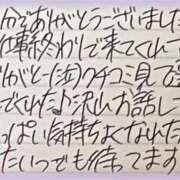 今日ありがとうございました
仕事終わりで来てくんて
ありがとー(泣)クチコミ見て選
でくれた♪沢山お話して
っぱい気持ちよくなれた
たいつでも待ってます